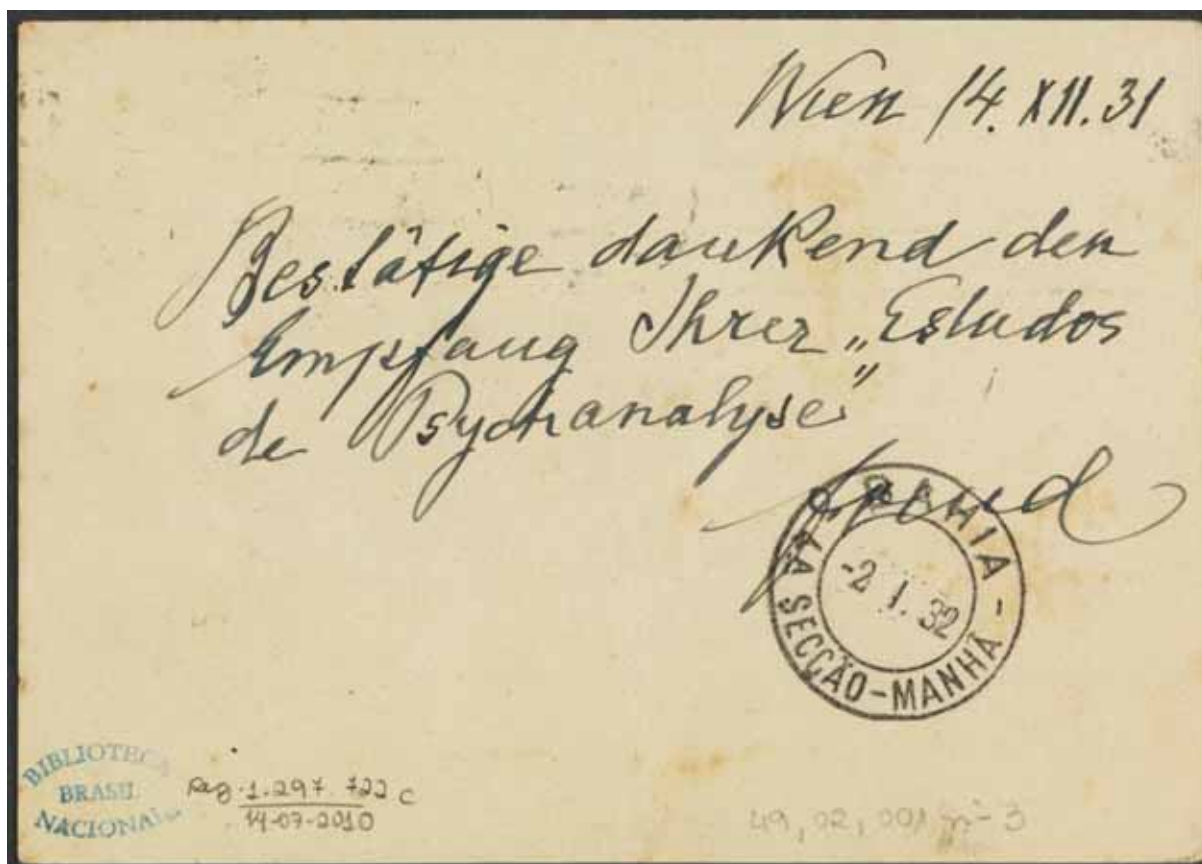 Wien 14. XII. 31
Bestätige dankend den
Empfang Ihrer „Estudos
de Psychanalyse"
Freud
BAHIA -
4A SECÇÃO - MANHÃ
-2 I. 32
BIBLIOTECA
BRASIL
NACIONAL
Reg. 1.297.722 C
14-07-2010
49,02,001 nº 3